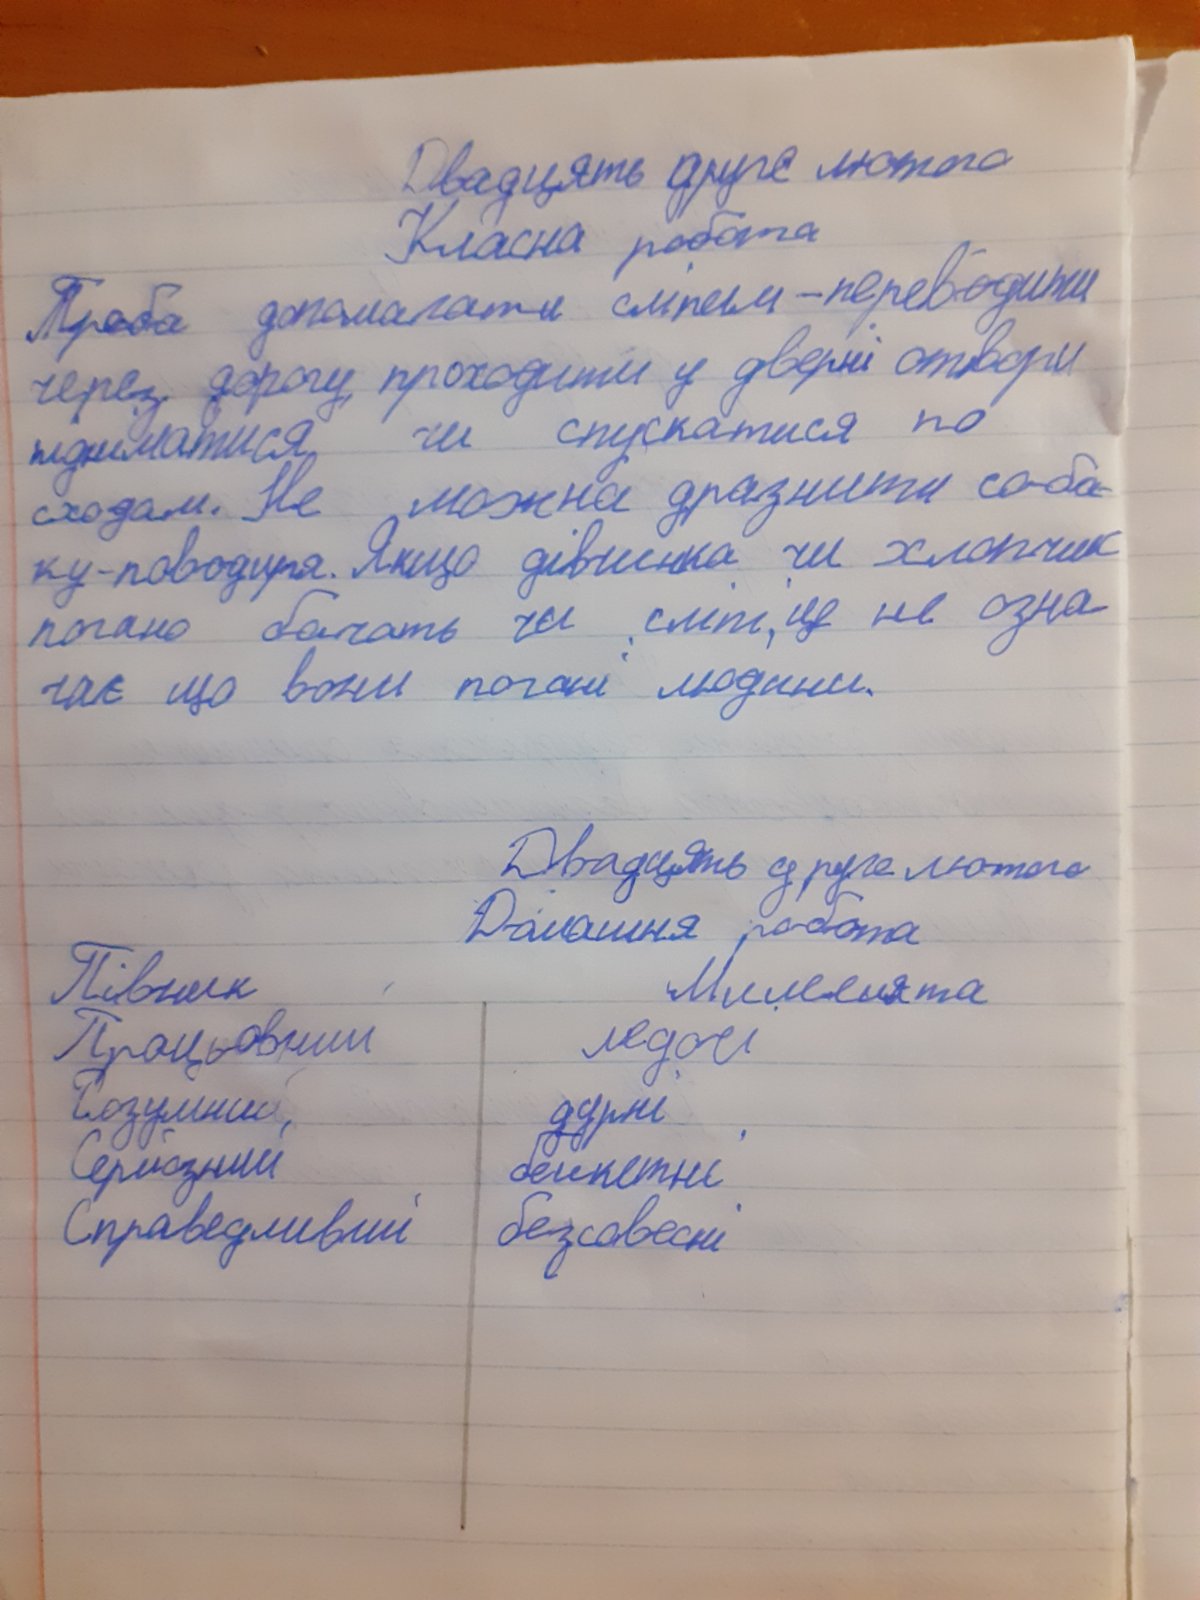 Двадцять друге лютого
Класна робота
Треба допомагати сліпим – переводити
через дорогу, проходити у дверні отвори
підніматися чи спускатися по
сходам. Не можна дразнити соба-
ку-поводиря. Якщо дівчинка чи хлопчик
погано бачать чи сліпі, це не озна
чає що вони погані людини.
Двадцять друге лютого
Домашня робота
Півник Мишенята
Працьовитий ледачі
Розумний, дурні
Серйозний
Справедливий безсовесні